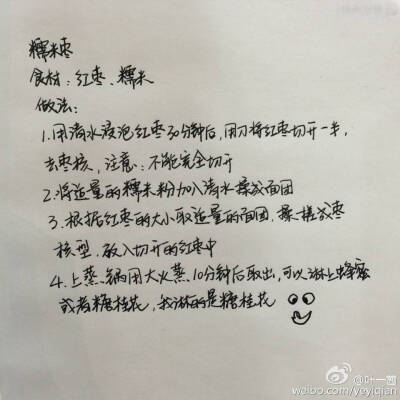 糯米枣
食材：红枣、糯米
做法：
1.用清水浸泡红枣30分钟后，用刀将红枣切开一半，
去枣核，注意：不能完全切开
2.将适量的糯米粉加入清水揉成面团
3.根据红枣的大小取适量的面团，揉搓成枣
核型，放入切开的红枣中
4.上蒸锅用大火蒸10分钟后取出，可以淋上蜂蜜
或者糖桂花，我淋的是糖桂花
@叶一茜
weibo.com/yeyiqian